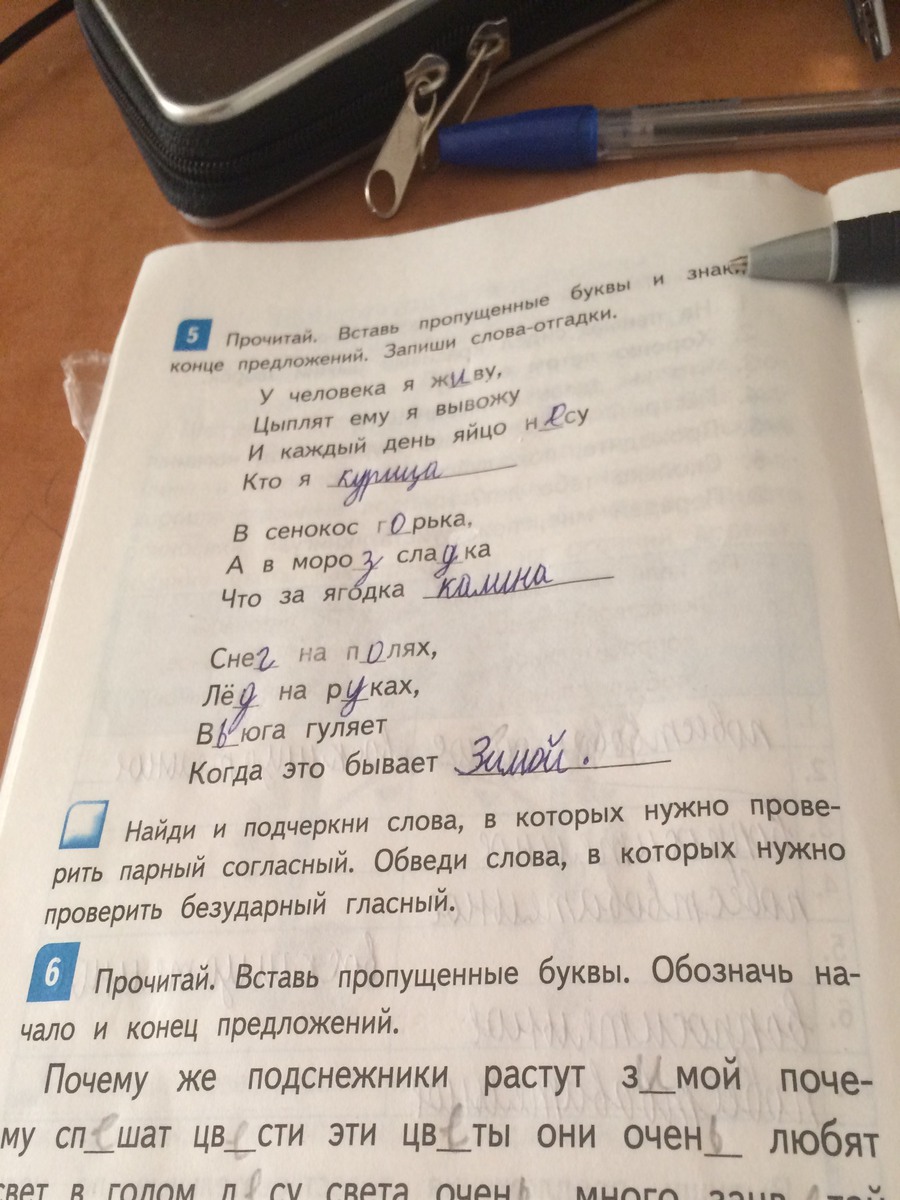 5 Прочитай. Вставь пропущенные буквы и знак
конце предложений. Запиши слова-отгадки.
У человека я живу,
Цыплят ему я вывожу
И каждый день яйцо несу
Кто я курица
В сенокос горька,
А в мороз сладка
Что за ягодка калина
Снег на полях,
Лёд на руках,
Вьюга гуляет
Когда это бывает Зимой.
Найди и подчеркни слова, в которых нужно прове-
рить парный согласный. Обведи слова, в которых нужно
проверить безударный гласный.
6 Прочитай. Вставь пропущенные буквы. Обозначь на-
чало и конец предложений.
Почему же подснежники растут зимой поче-
му спешат цвести эти цветы они очень любят
свет в голом лесу света очень много